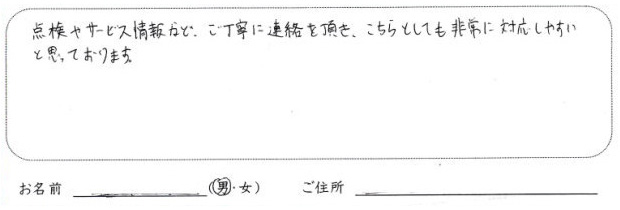 点検やサービス情報など、ご丁寧に連絡を頂き、こちらとしても非常に対応しやすい
と思っております。
お名前 (男・女) ご住所